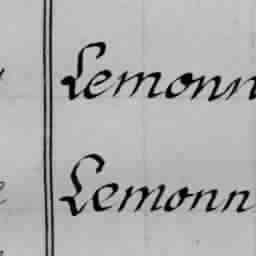 Lemonn
Lemonn